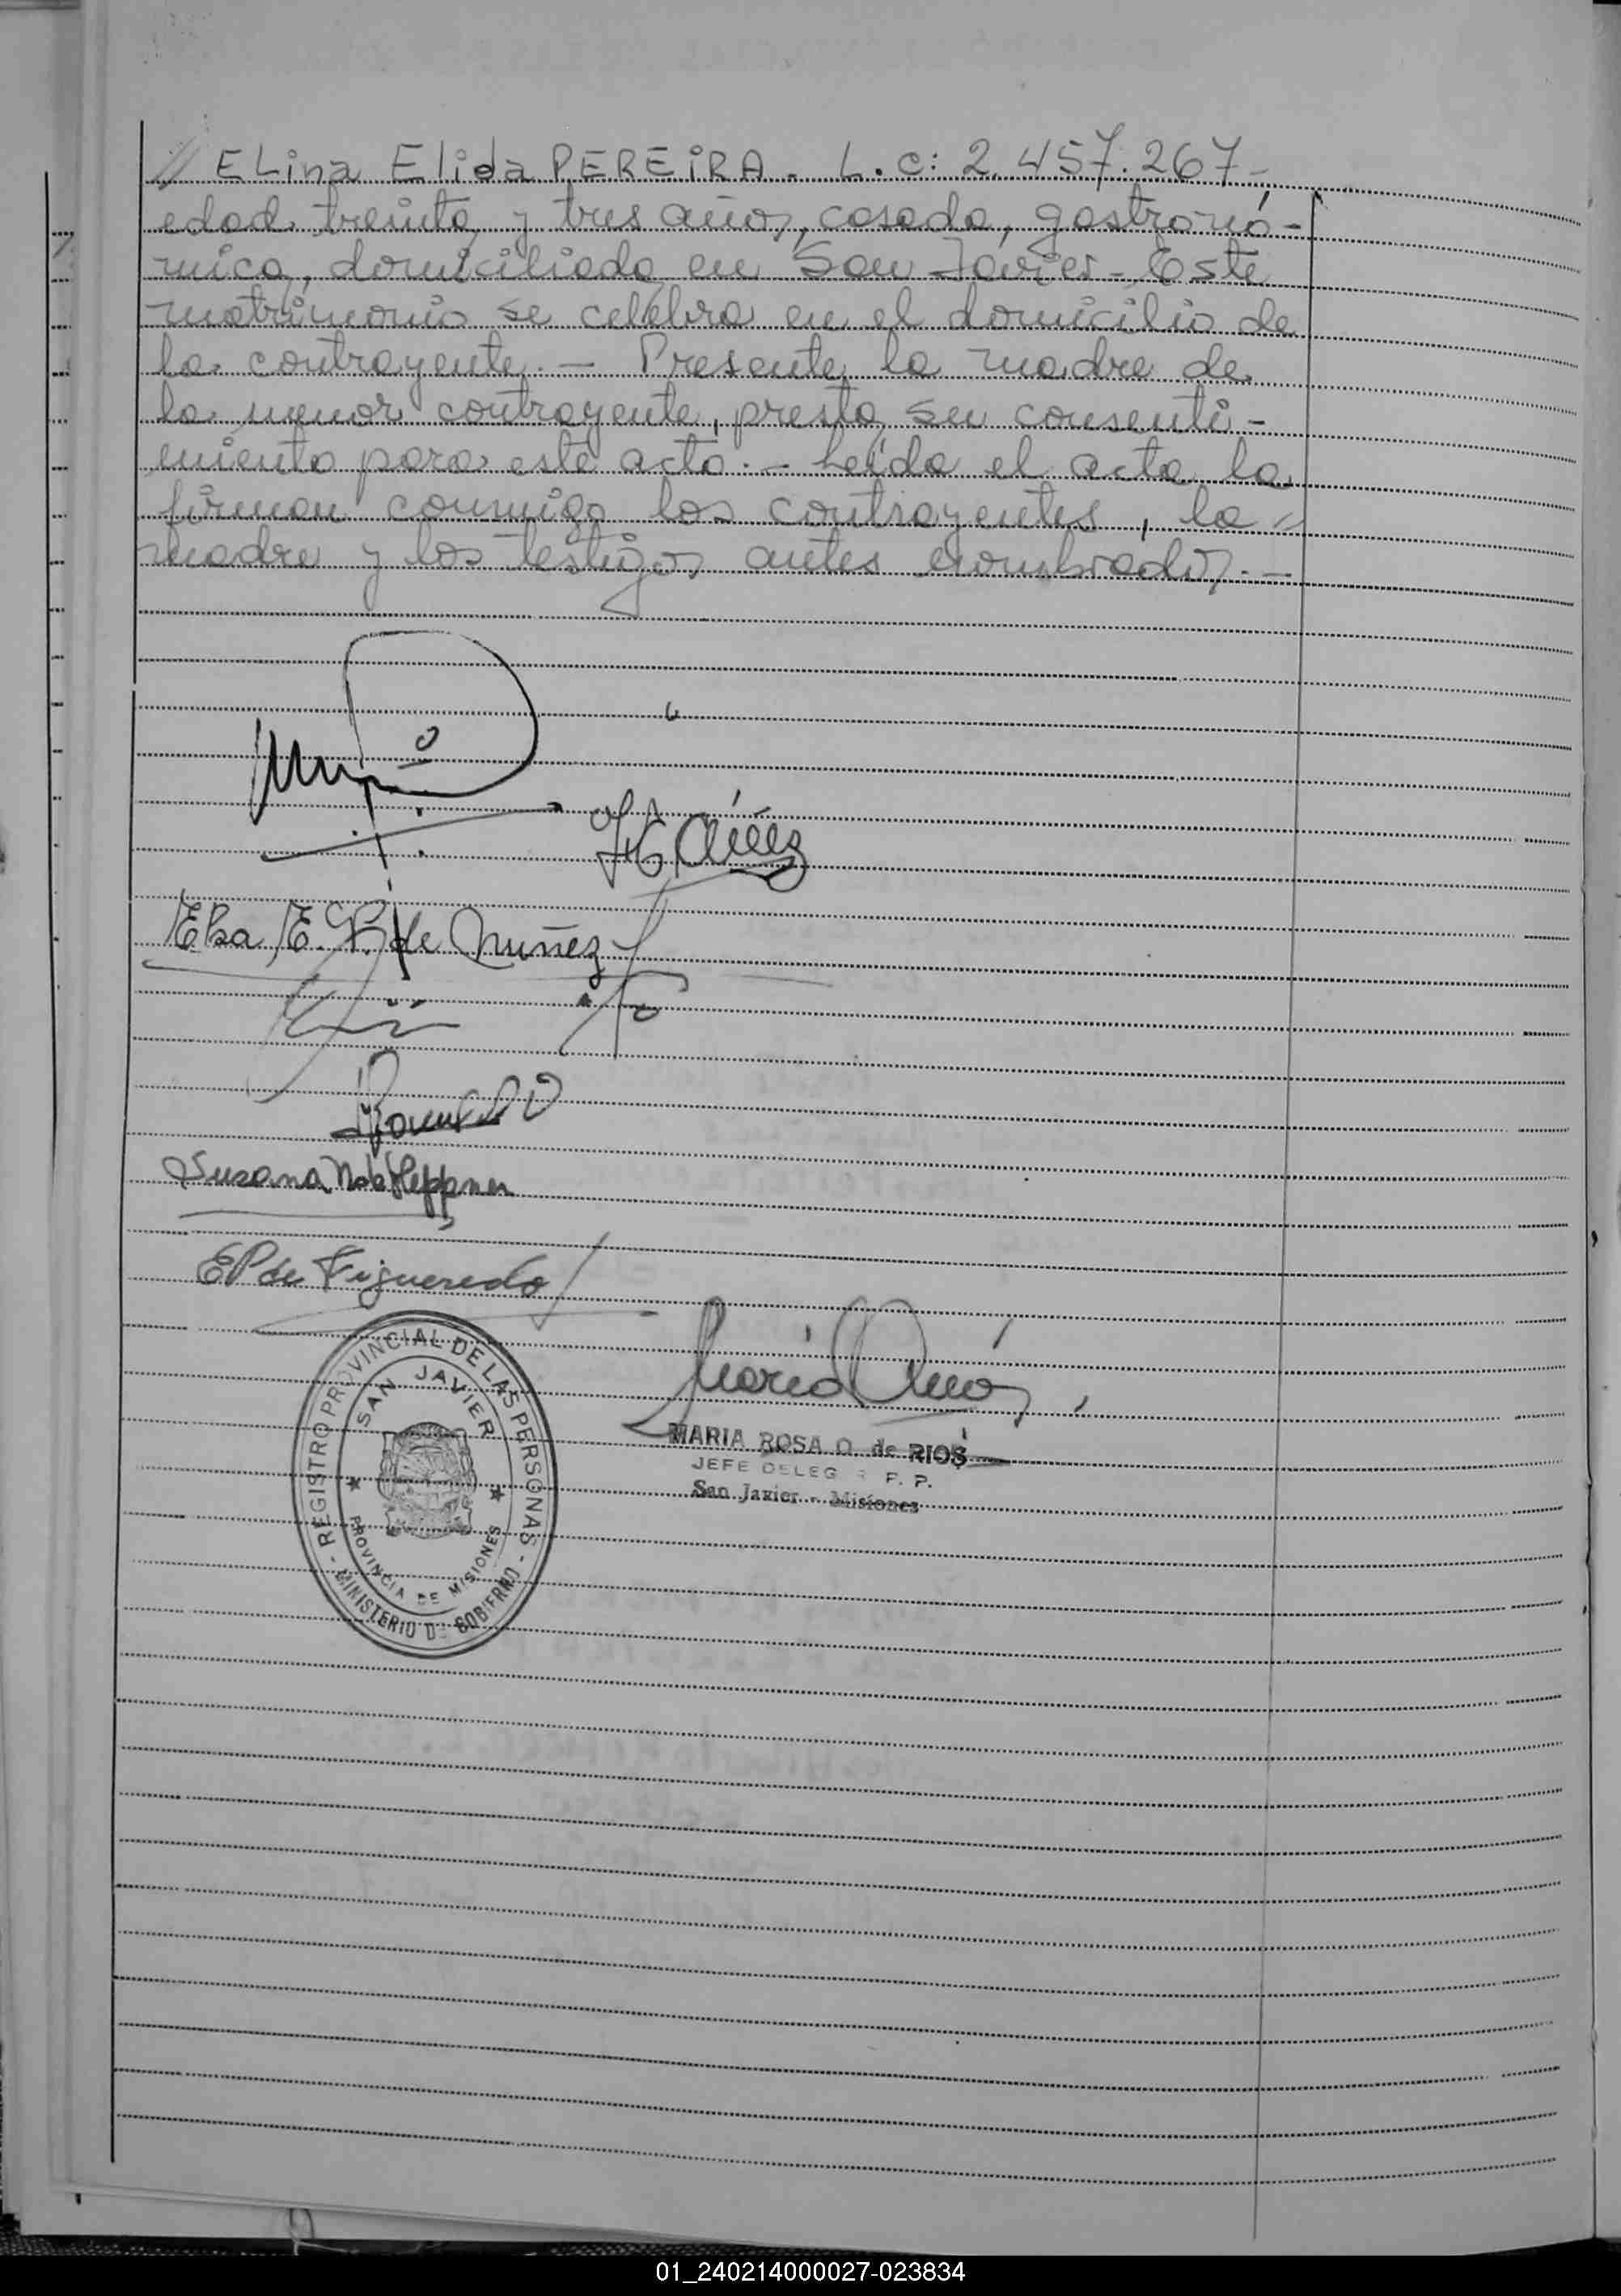 // ELina Elida PEREIRA. L.C: 2.457.267-
edad treinta y tres años, casada, gastronó-
mica, domiciliada en San Javier - Este
matrimonio se celebra en el domicilio de
la contrayente. - Presente la madre de
la menor contrayente, presta su consenti-
miento para este acto. - Leída el acta la
firman conmigo los contrayentes, la //
madre y los testigos antes nombrados. -
Elsa E. de Nuñez
Susana Heppner
EP de Figueredo
REGISTRO PROVINCIAL DE LAS PERSONAS
SAN JAVIER
PROVINCIA DE MISIONES
- MINISTERIO DE GOBIERNO -
MARIA ROSA O. de RIOS
JEFE DELEG R P. P.
San Javier - Misiones
01_240214000027-023834